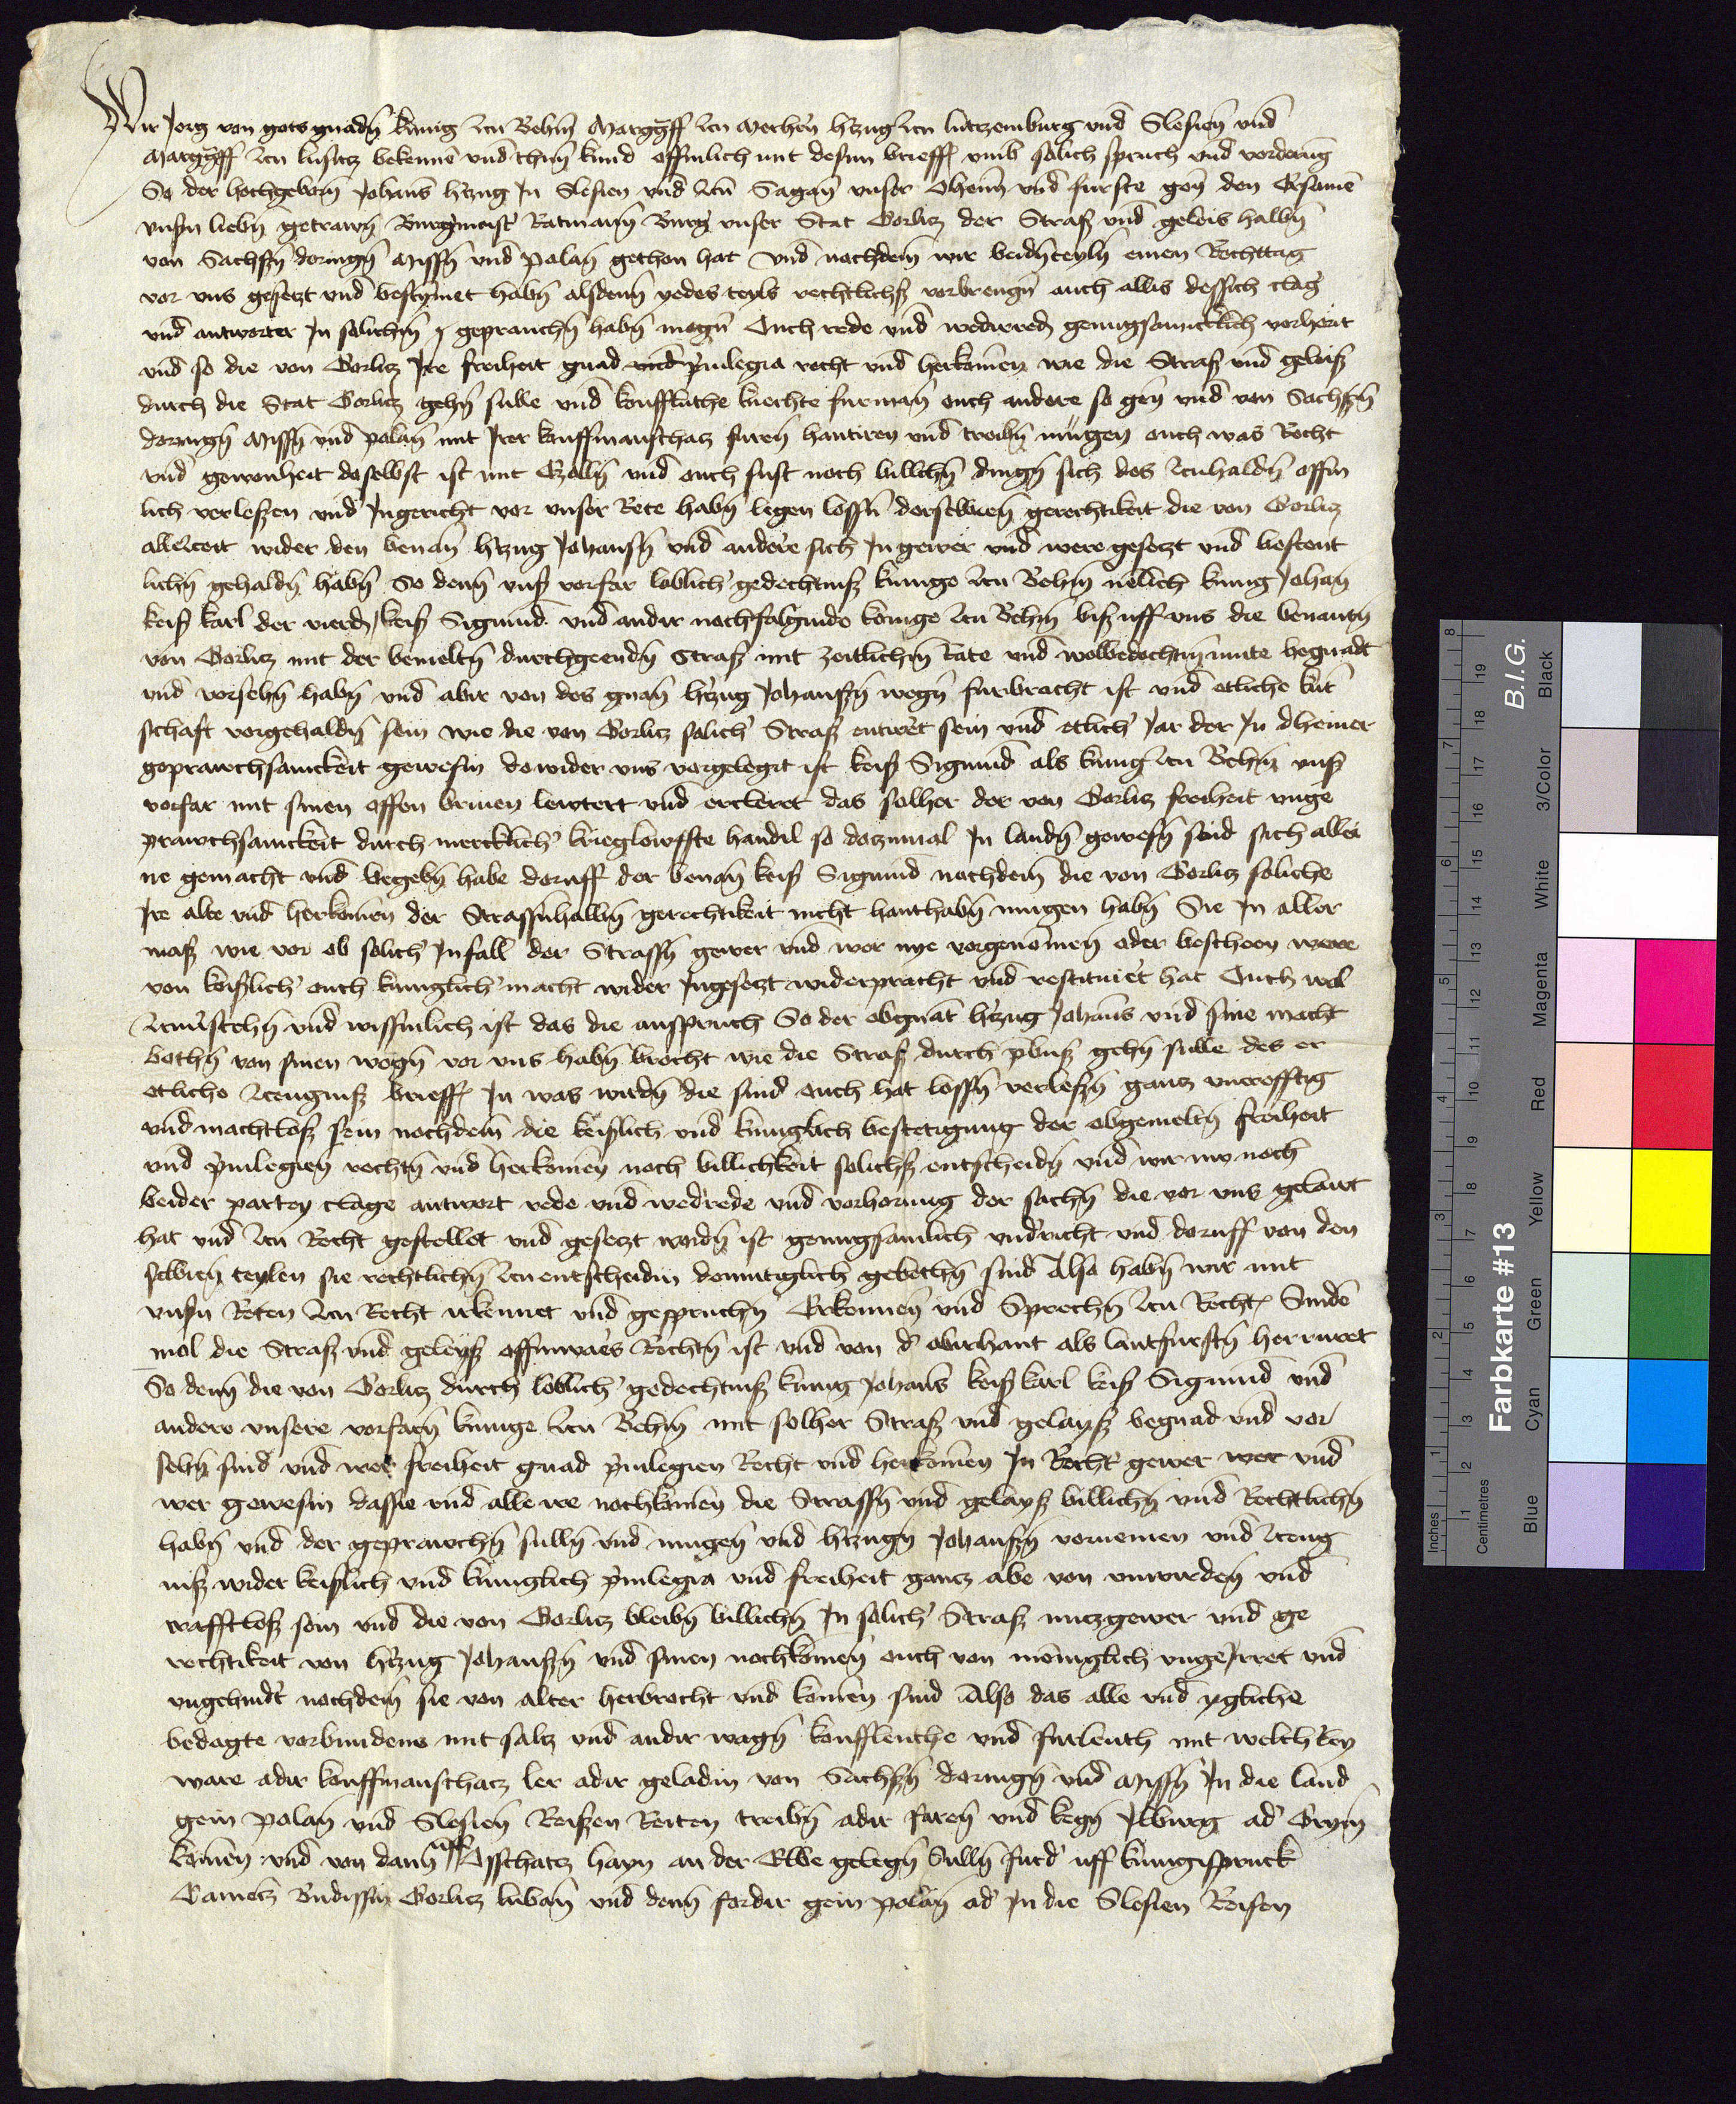 Wir Jorg von gots gnadn̄ kunig zcu Behm̄ Marggff zcu Merhern h'czug zcu luczemburg vnd Slesien vnd
Marggff zcu lusicz bekennē vnd thun̄ kund offinlich mit desim brieffe vmb solich spruch vnd vorderūg
So der hochgeborn̄ Johans h'czug In Slesien vnd zcu Sagan̄ vnser Oheim̄ vnd furste gen̄ den Ersamē
vnsn̄ liebn̄ getrawn̄ Burg'meist' Ratmann̄ Burg' vnser Stat Gorlicz der Straß vnd geleis halbn̄
von Sachsn̄ doringn̄ Missn̄ vnd polan̄ gethon hat vnd nochdem̄ wir beidn̄ teyln̄ einen Rechttag
vor vns gesetzt vnd bestymet habn̄ alsdenn̄ yedes teyls rechtlichs vorbrengn̄ auch allis dessich clag'
vnd antworter In solichm̄ geprauchn̄ habn̄ mogn̄ Ouch rede vnd wedirrede genugsamicklich verhort
vnd so die von Gorlicz Ire freiheit gnad vnd p'uilegia recht vnd herkomen wie die Straß vnd geleiß
durch die Stat Gorlicz gehn̄ sulle vnd kouffluthe knechte furman̄ ouch andere so gen̄ vnd von Sachsn̄
doringn̄ Missn̄ vnd polan̄ mit Irer kouffmanschacz furen̄ hantiren vnd treibn̄ mugen ouch was Recht
vnd gewonheit doselbst ist mit Czolln̄ vnd ouch sust noch billichn̄ dingn̄ sich des zcuhaldn̄ offin
lich verleßen vnd Ingericht vor vnser Rete habn̄ legen lossn̄ derselbien̄ gerechtikeit die von Gorlicz
allczeit wider den benan̄ h'czug Johansn̄ vnd andere sich In gewer vnd were gesetzt vnd bestent
lichn̄ gehaldn̄ habn̄ So denn̄ vnß vorfar loblich' gedechtniß kunige zcu Behm̄ nēlich kunig Johan̄
keiß karl der vierde keiß Sigmund vnd ander nochfolginde konige zcu Behm̄ biß uff vns die benantn̄
von Gorlicz mit der bemeltn̄ durchgeendn̄ Straß mit zeitlichm̄ Rate vnd wolbedochtm̄ mute begnadt
vnd vorsehn̄ habn̄ vnd abir von des gnan̄ h'czug Johanßn̄ wegn̄ furbracht ist vnd etliche kut
schaft vorgehaldn̄ sein wie die von Gorlicz solich' Straß entwert sein vnd etlich' Jar der In dheiner
geprawchsamckeit gewesin dowider vns vorgelegt ist keiß Sigmund als kunig zcu Behm̄ vnß
vorfar mit sinen offen briuen lewtert vnd ercleret das solher der von Gorlicz freiheit vnge
prawchsamckeit durch mercklich' krieglowffte handil so doczumal In landn̄ gewesn̄ sind sich allei
ne gemacht vnd begebn̄ habe doruff der benan̄ keiß Sigmund nochdem̄ die von Gorlicz soliche
Ire alte vnd herkomen der Strassnhalbn̄ gerechtikeit nicht hanthabn̄ mugen habn̄ Sie In aller
maß wie vor ob solich' Infall der Strassn̄ gewer vnd wer nye vorgenomen̄ oder bescheen were
von keißlich' ouch kuniglich' macht wider Ingesetzt widerpracht vnd restituiert hat Ouch wol
zcuu'stehn̄ vnd wissinlich ist das die anspruch So der obgnāt h'czug Johans vnd sine macht
bothn̄ von sinen wegn̄ vor vns habn̄ brocht wie die Straß durch pbus gehn̄ sulle des er
etliche zceugniß brieffe In was wirdn̄ die sind ouch hat lossn̄ verleßn̄ gancz vncrefftig
vnd machtloß sein nochdem̄ die keißlich vnd kuniglich bestetigung der obgemeltn̄ freiheit
vnd p'uilegien̄ rechtn̄ vnd herkomen̄ noch billichkeit solichs entscheidn̄ vnd wir nw noch
beider partey clage antwort rede vnd wedrede vnd vorhorung der sachn̄ die vor vns gelaut
hat vnd zcu Recht gestellet vnd gesetzt wordn̄ ist genugsamlich vndricht vnd doruff von den
selbien̄ teylen sie rechtlichn̄ zcu entscheidin demutiglich gebethn̄ sind Also habn̄ wir mit
vnsn̄ Reten zcu Recht irkennet vnd gesprochn̄ Erkennen̄ vnd Sprechn̄ zcu Rechte Sinde
mol die Straß vnd geleyß offinwars Rechtn̄ ist vnd von d' obirhant als lantfurstn̄ herruret
So denn̄ die von Gorlicz durch loblich' gedechtniß kunig Johans keiß karl keiß Sigmund vnd
andere vnsere vorfarn̄ kunige zcu Behm̄ mit solher Straß vnd gelayß begnad vnd vor
sehn̄ sind vnd wer freiheit gnad p'uilegien Recht vnd herkomen In Recht' gewer wer vnd
wer gewesin dassie vnd alle ire nochkomen̄ die Strassn̄ vnd gelayß billichn̄ vnd Rechtlichn̄
habn̄ vnd der geprawchn̄ sulln̄ vnd mugen̄ vnd h'czugn̄ Johanßn̄ vornemen vnd zceug
niß wider keißlich vnd kuniglich p'uilegia vnd freiheit gancz abe von vnwirden̄ vnd
crafftloß sein vnd die von Gorlicz bleibn̄ billichn̄ In solich' Straß nuczgewer vnd ge
rechtikeit von h'czug Johanßn̄ vnd sinen nochkomen̄ ouch von meniglich vngeirret vnd
vngehindt nochdem̄ sie von alter herbrocht vnd komen sind Also das alle vnd ygliche
bedagte vorbundene mit salcz vnd andir wagn̄ kouffleuthe vnd furleuth mit welch'ley
ware adir kouffmanschacz ler adir geladin von Sachßn̄ doringn̄ vnd Missn̄ In die land
gein polan̄ vnd Slesien̄ Reißen Reiten treibn̄ adir faren̄ vnd kegn̄ Ilburg ad' Grym̄
komen vnd von dann̄ uff Osschatcz hayn an der Elbe gelegn̄ Sulln̄ furd' uff kunigspruck
Camencz Budissin Gorlicz luban̄ vnd denn̄ fordir gein polan̄ ad' In die Slesien Reisen